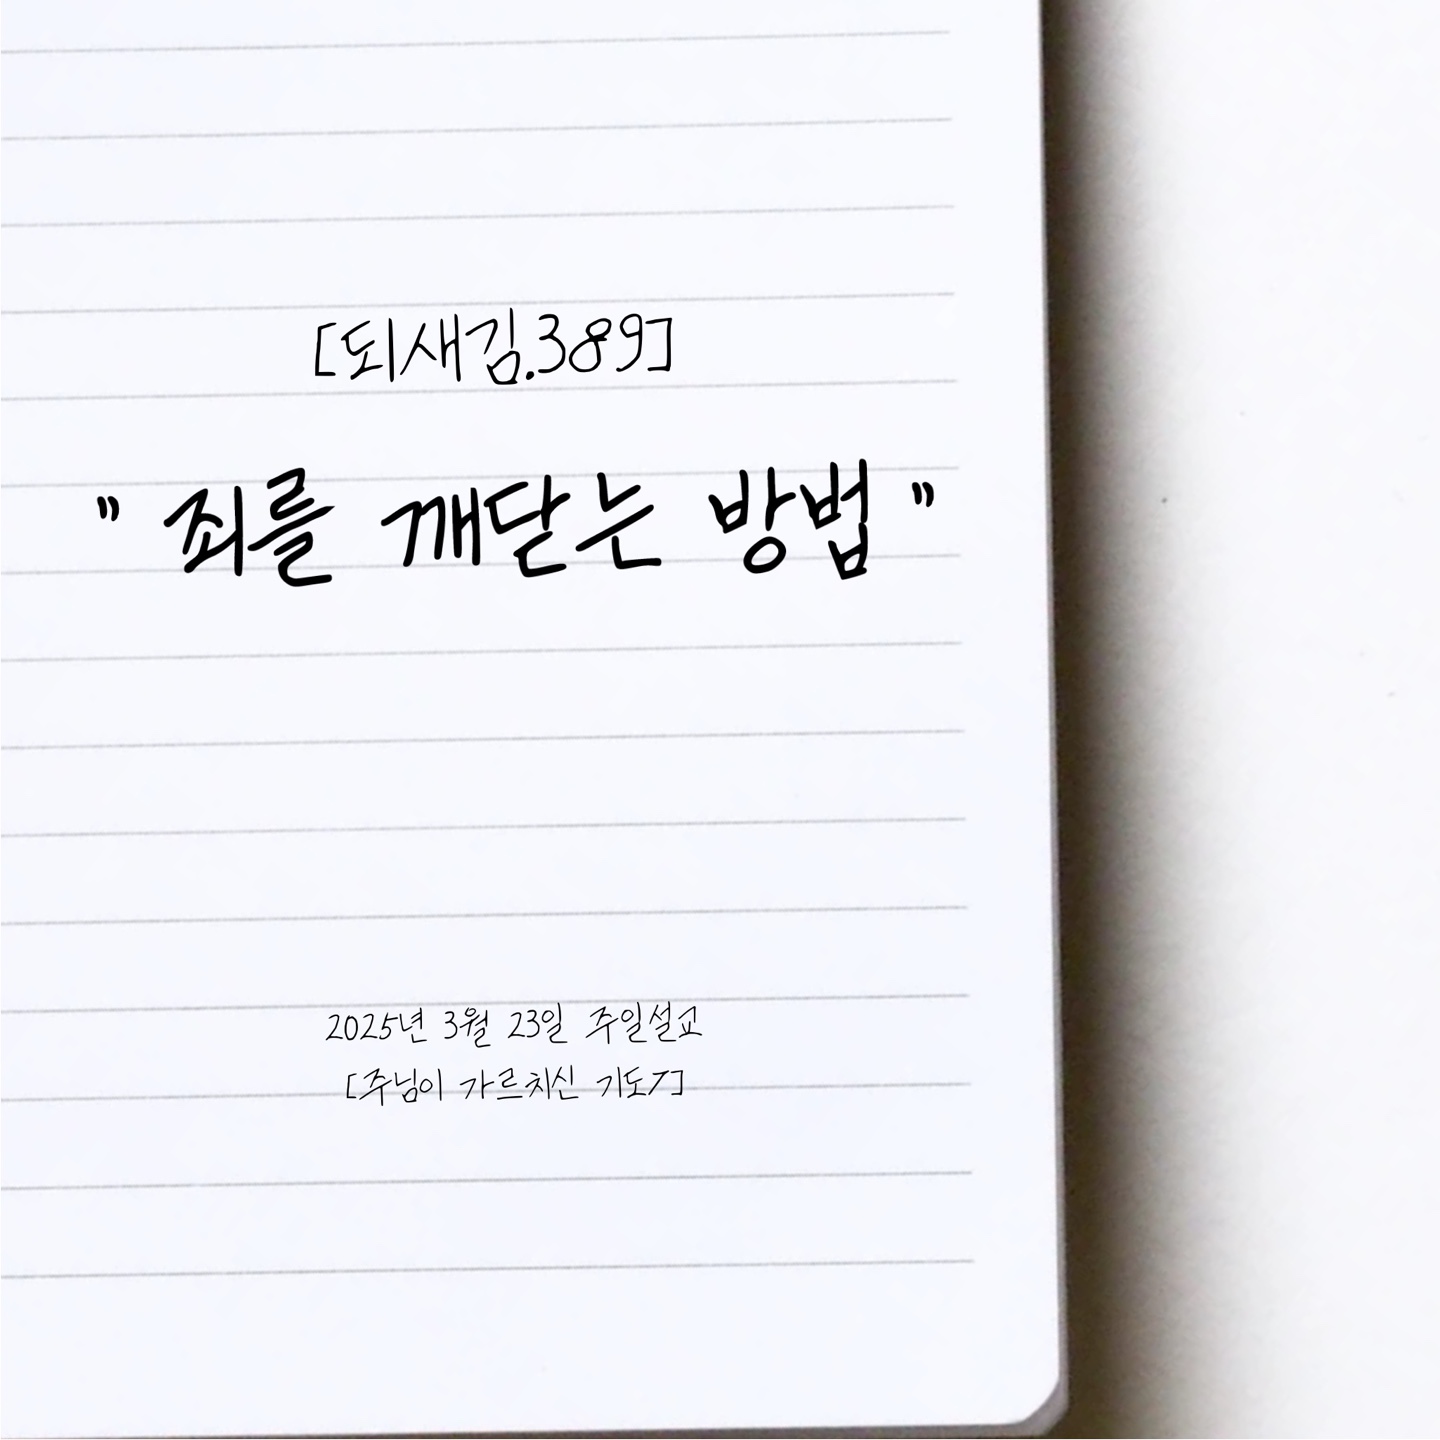 [되새김.389]
" 죄를 깨닫는 방법 "
2025년 3월 23일 주일설교
[주님이 가르치신 기도7]